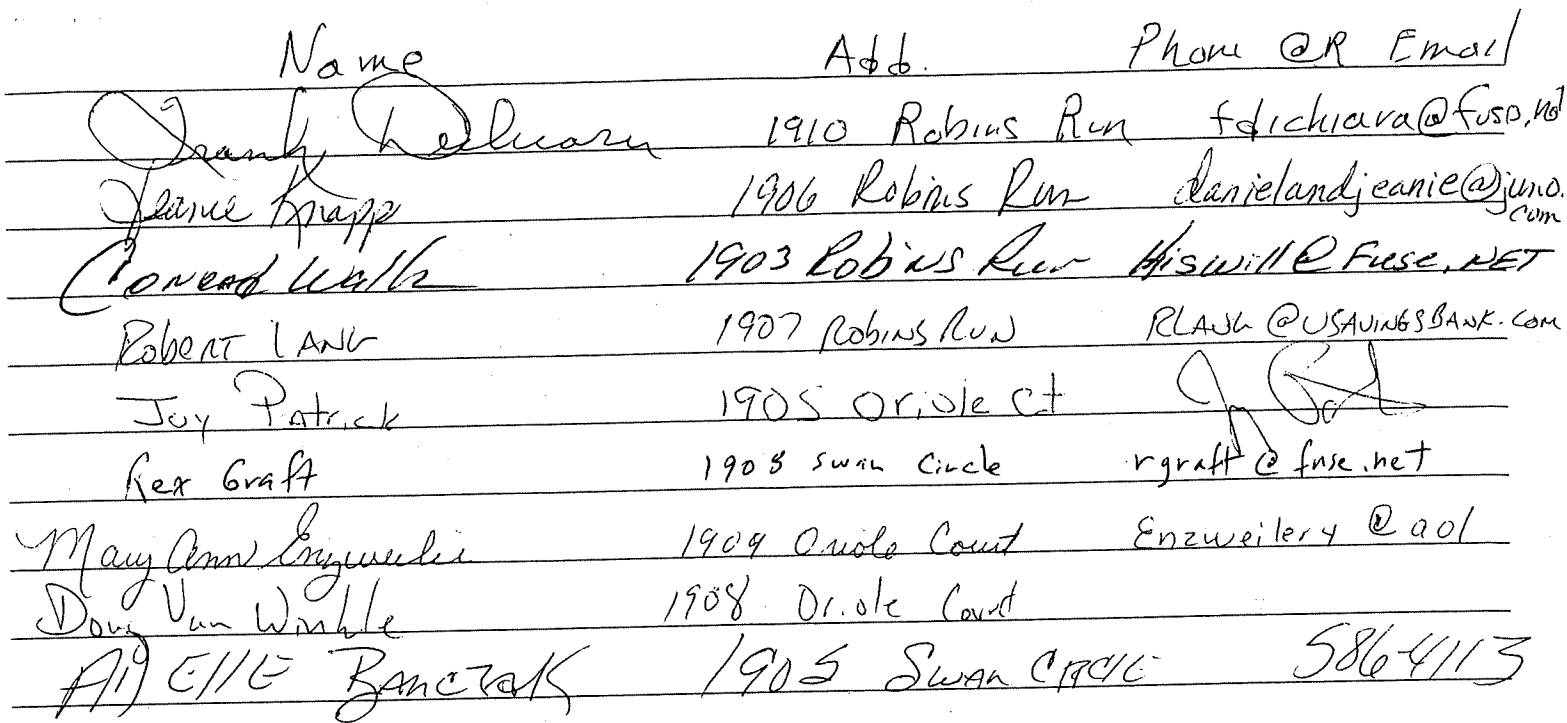 Name Add. Phone @R Email
Frank 1910 Robins Run fdichiara@fuse.net
Jeanie Knapp 1906 Robins Run danielandjeanie@juno.com
Conrad Walk 1903 Robins Run Hiswill@Fuse.NET
Robert LANG 1907 Robins RUN RLANG@USAVINGSBANK.com
Joy Patrick 1905 Oriole Ct
Rex Graft 1908 Swan Circle rgraft@fuse.net
Mary Ann Enzweiler 1909 Oriole Court Enzweiler4@aol
Doug Van Winkle 1908 Oriole Court
BANCZAK 1905 SWAN 586-4113